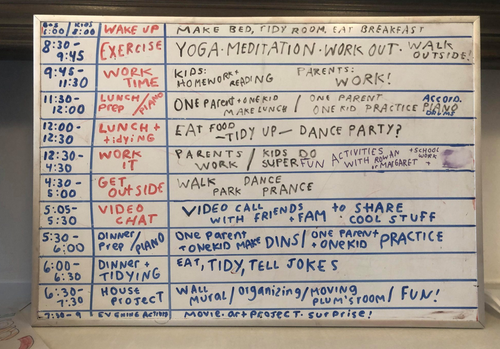 6:00 / KIDS 8:00 WAKE UP MAKE BED, TIDY ROOM, EAT BREAKFAST
8:30-9:45 EXERCISE YOGA · MEDITATION · WORK OUT · WALK OUTSIDE!
9:45-11:30 WORK TIME KIDS: HOMEWORK + READING PARENTS: WORK!
11:30-12:00 LUNCH Prep / PIANO ONE PARENT + ONE KID MAKE LUNCH / ONE PARENT ONE KID PRACTICE PIANO
12:00-12:30 LUNCH + tidying EAT FOOD - TIDY UP - DANCE PARTY?
12:30-4:30 WORK IT PARENTS WORK / KIDS DO SUPER FUN ACTIVITIES WITH ROWAN or MARGARET + SCHOOL WORK
4:30-5:00 GET OUTSIDE WALK DANCE PARK PRANCE
5:05-5:30 VIDEO CHAT VIDEO CALL WITH FRIENDS + FAM to SHARE COOL STUFF
5:30-6:00 DINNER Prep / PIANO ONE PARENT + ONE KID MAKE DINS / ONE PARENT + ONE KID PRACTICE
6:00-6:30 DINNER + TIDYING EAT, TIDY, TELL JOKES
6:30-7:30 HOUSE PROJECT WALL MURAL / ORGANIZING / MOVING PLUM'S ROOM / FUN!
7:30-9 EVENING MOVIE · ART PROJECT · SURPRISE!